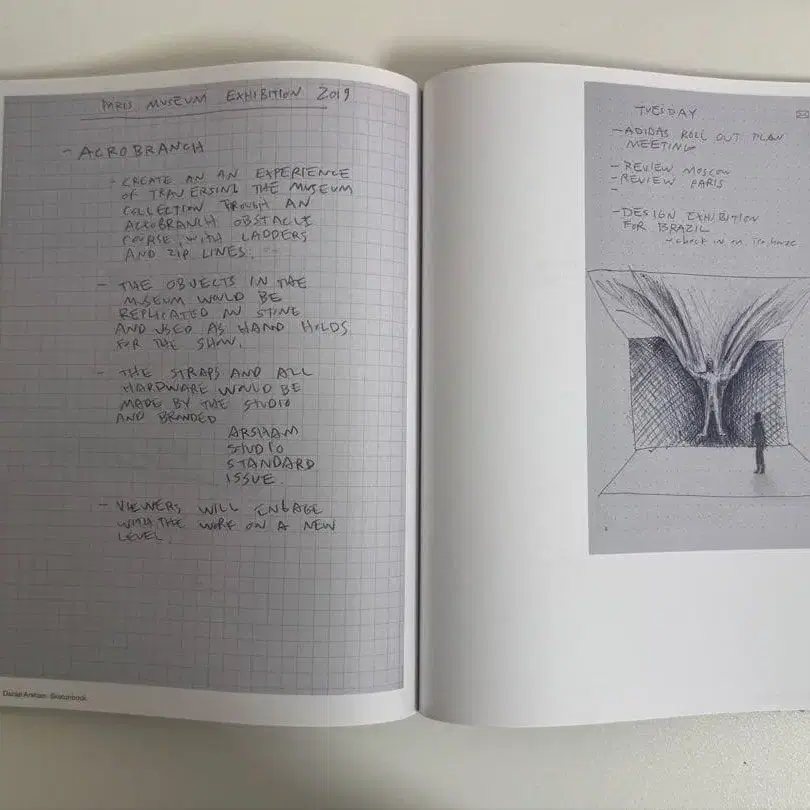 PARIS MUSEUM EXHIBITION 2019
- ACROBRANCH
- CREATE AN AN EXPERIENCE
OF TRAVERSING THE MUSEUM
COLLECTION THROUGH AN
ACROBRANCH OBSTACLE
COURSE, WITH LADDERS
AND ZIP LINES.
- THE OBJECTS IN THE
MUSEUM WOULD BE
REPLICATED IN STONE
AND USED AS HAND HOLDS
FOR THE SHOW.
- THE STRAPS AND ALL
HARDWARE WOULD BE
MADE BY THE STUDIO
AND BRANDED
ARSHAM
STUDIO
STANDARD
ISSUE.
- VIEWERS WILL ENGAGE
WITH THE WORK ON A NEW
LEVEL.
Daniel Arsham: Sketchbook
TUESDAY
- ADIDAS ROLL OUT PLAN
MEETING
- REVIEW MOSCOW
- REVIEW PARIS
-
- DESIGN EXHIBITION
FOR BRAZIL
- check in on